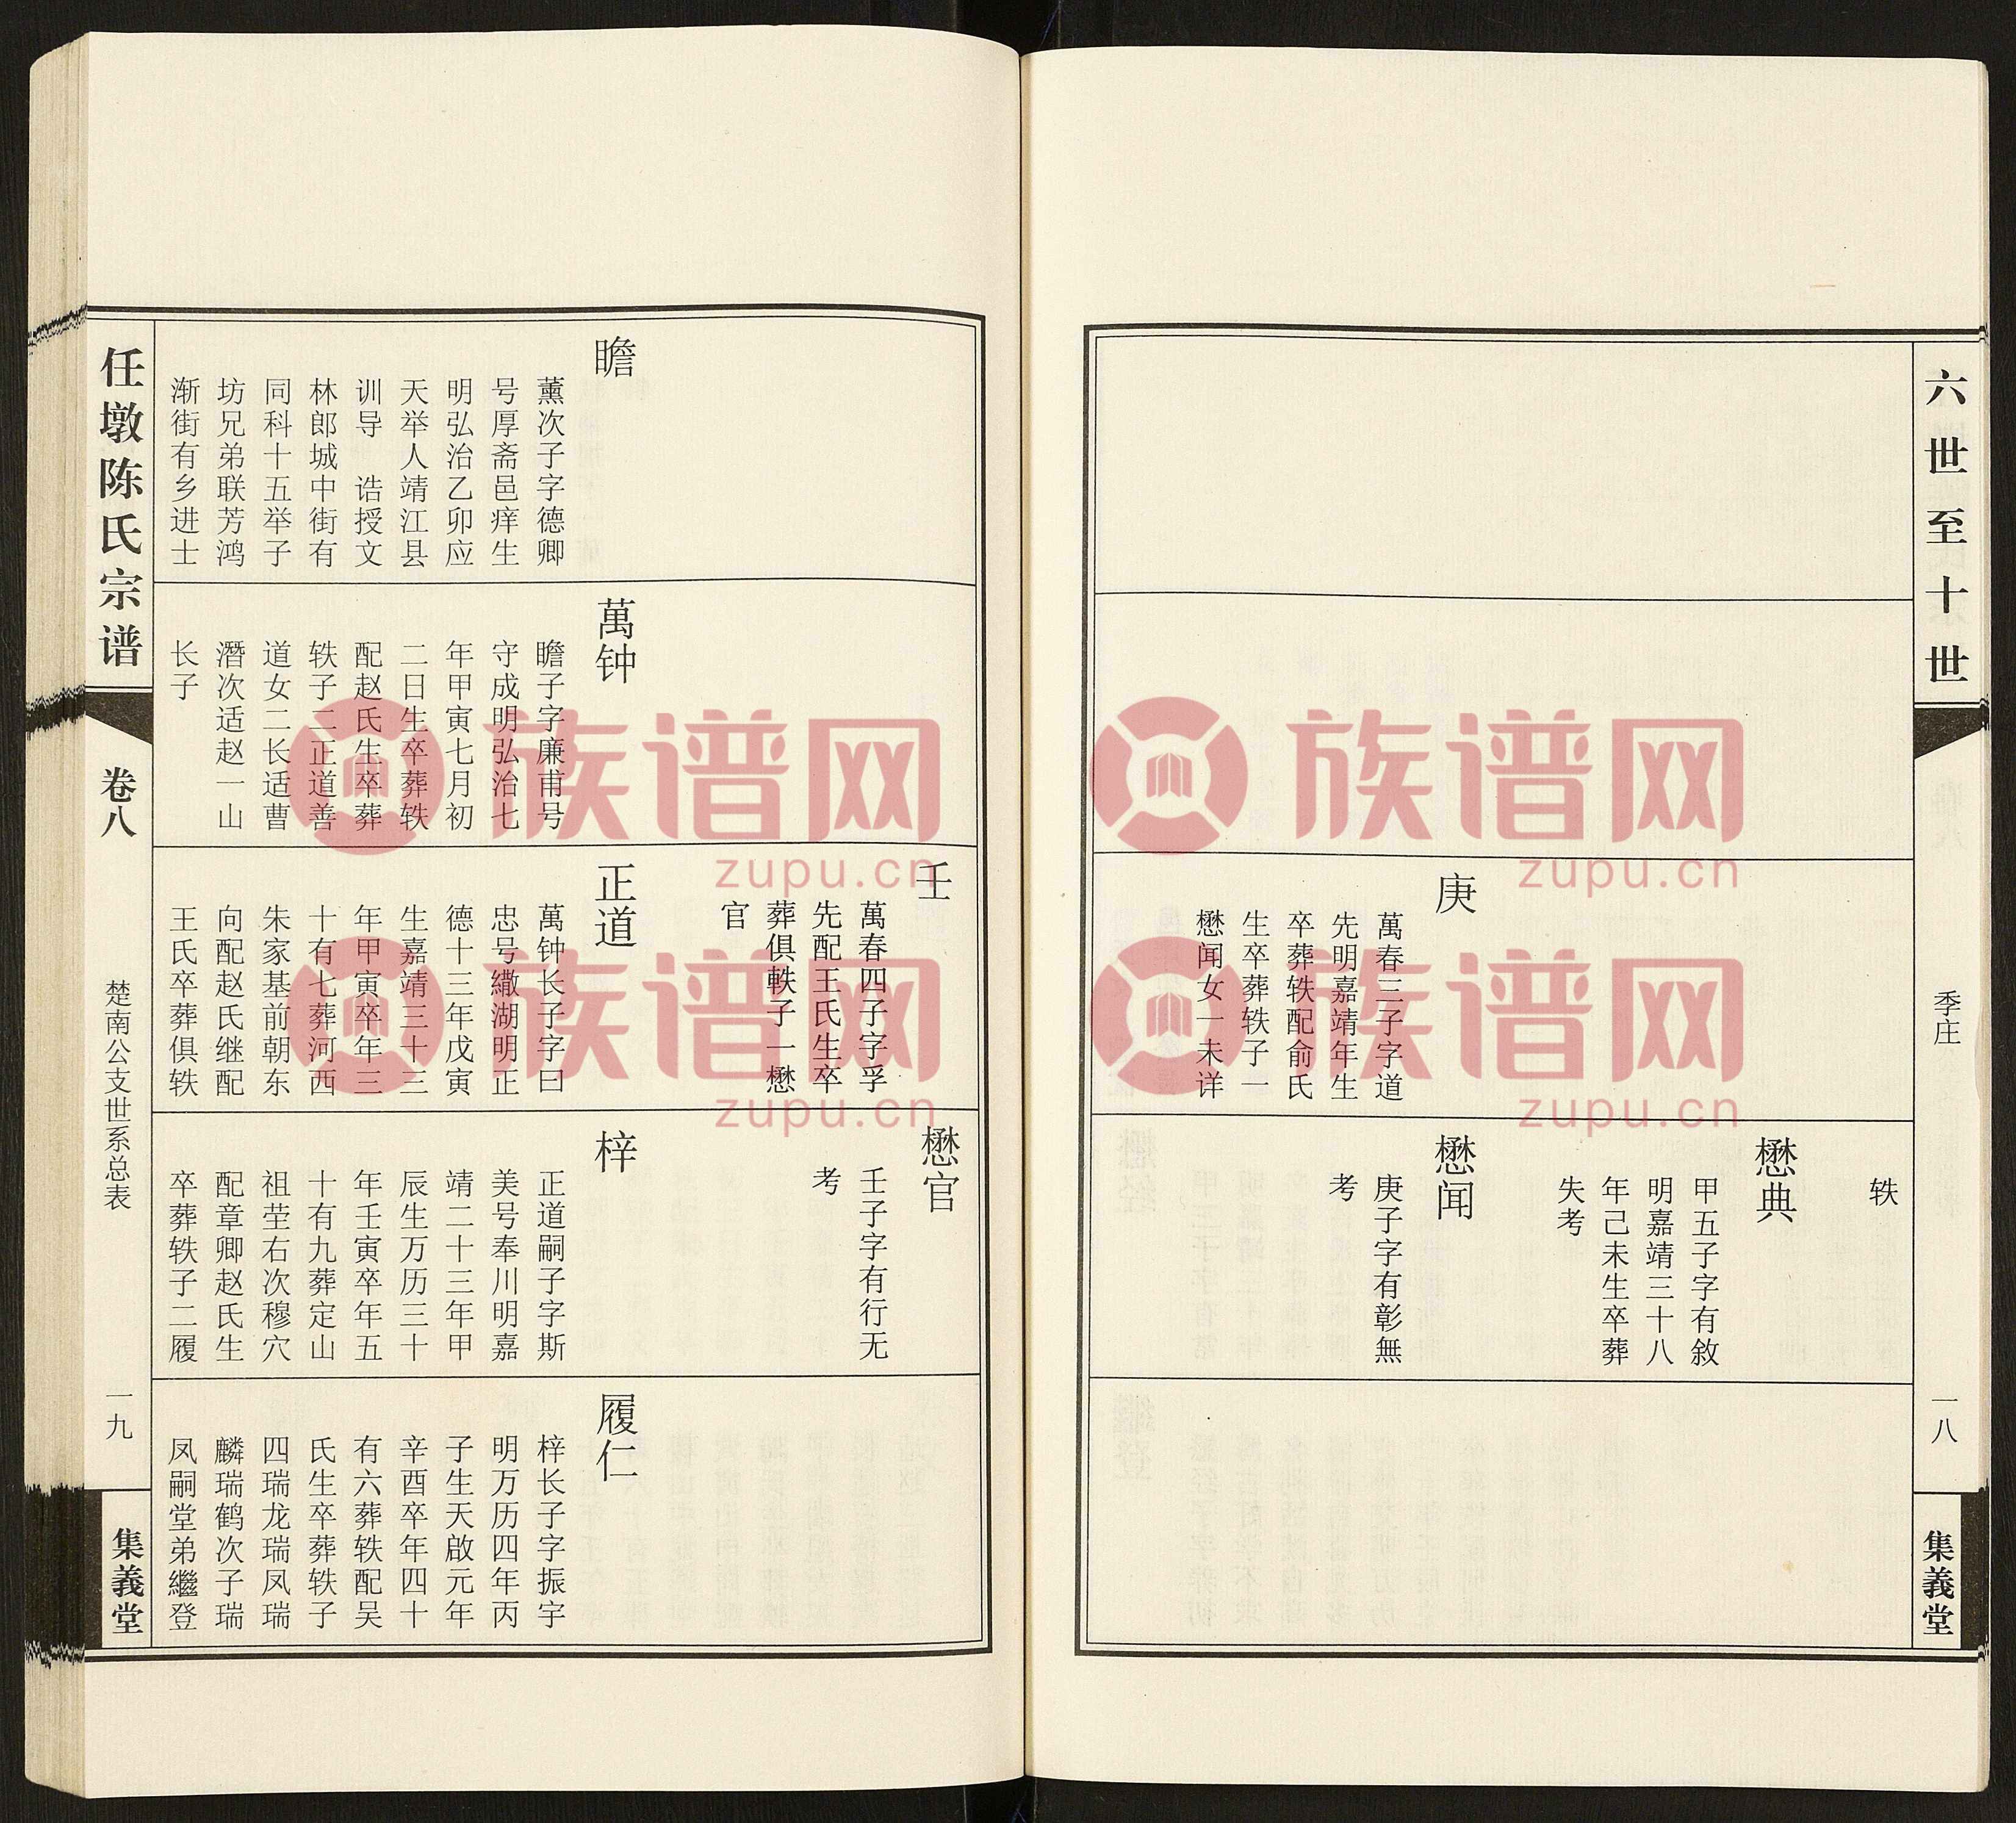 六世至十世
季庄
一八
集義堂
庚
萬春三子字道
先明嘉靖年生
卒葬轶配俞氏
生卒葬轶子一
懋闻女一未详
轶
懋典
甲五子字有敘
明嘉靖三十八
年己未生卒葬
失考
懋闻
庚子字有彰無
考
瞻
薰次子字德卿
号厚斋邑痒生
明弘治乙卯应
天举人靖江县
训导 诰授文
林郎城中街有
同科十五举子
坊兄弟联芳鸿
渐街有乡进士
萬钟
瞻子字廉甫号
守成明弘治七
年甲寅七月初
二日生卒葬轶
配赵氏生卒葬
轶子二正道善
道女二长适曹
潛次适赵一山
长子
壬
萬春四子字孚
先配王氏生卒
葬俱軼子一懋
官
正道
萬钟长子字曰
忠号繖湖明正
德十三年戊寅
生嘉靖三十三
年甲寅卒年三
十有七葬河西
朱家基前朝东
向配赵氏继配
王氏卒葬俱轶
懋官
壬子字有行无
考
梓
正道嗣子字斯
美号奉川明嘉
靖二十三年甲
辰生万历三十
年壬寅卒年五
十有九葬定山
祖莹右次穆穴
配章卿赵氏生
卒葬轶子二履
履仁
梓长子字振宇
明万历四年丙
子生天啟元年
辛酉卒年四十
有六葬轶配吴
氏生卒葬轶子
四瑞龙瑞凤瑞
麟瑞鹤次子瑞
凤嗣堂弟繼登
任墩陈氏宗谱
卷八
楚南公支世系总表
一九
集義堂
族谱网
zupu.cn
族谱网
zupu.cn
族谱网
zupu.cn
族谱网
zupu.cn